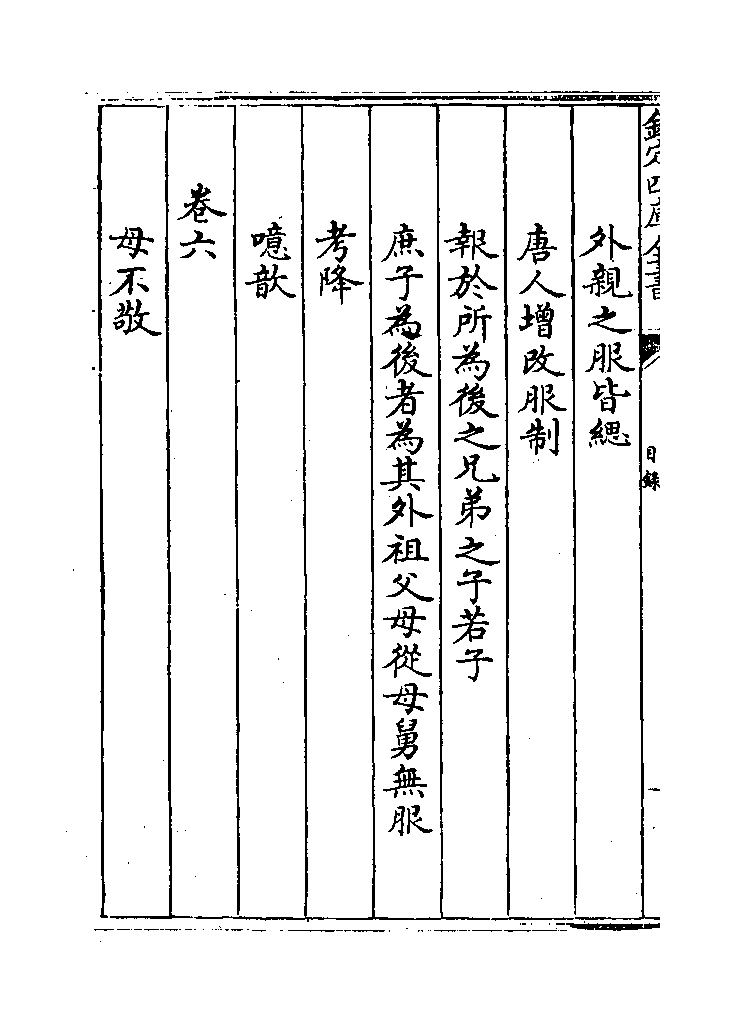 欽定四庫全書
目録
外親之服皆緦
唐人增改服制
報於所為後之兄弟之子若子
庶子為後者為其外祖父母從母舅無服
考降
噫歆
卷六
毋不敬